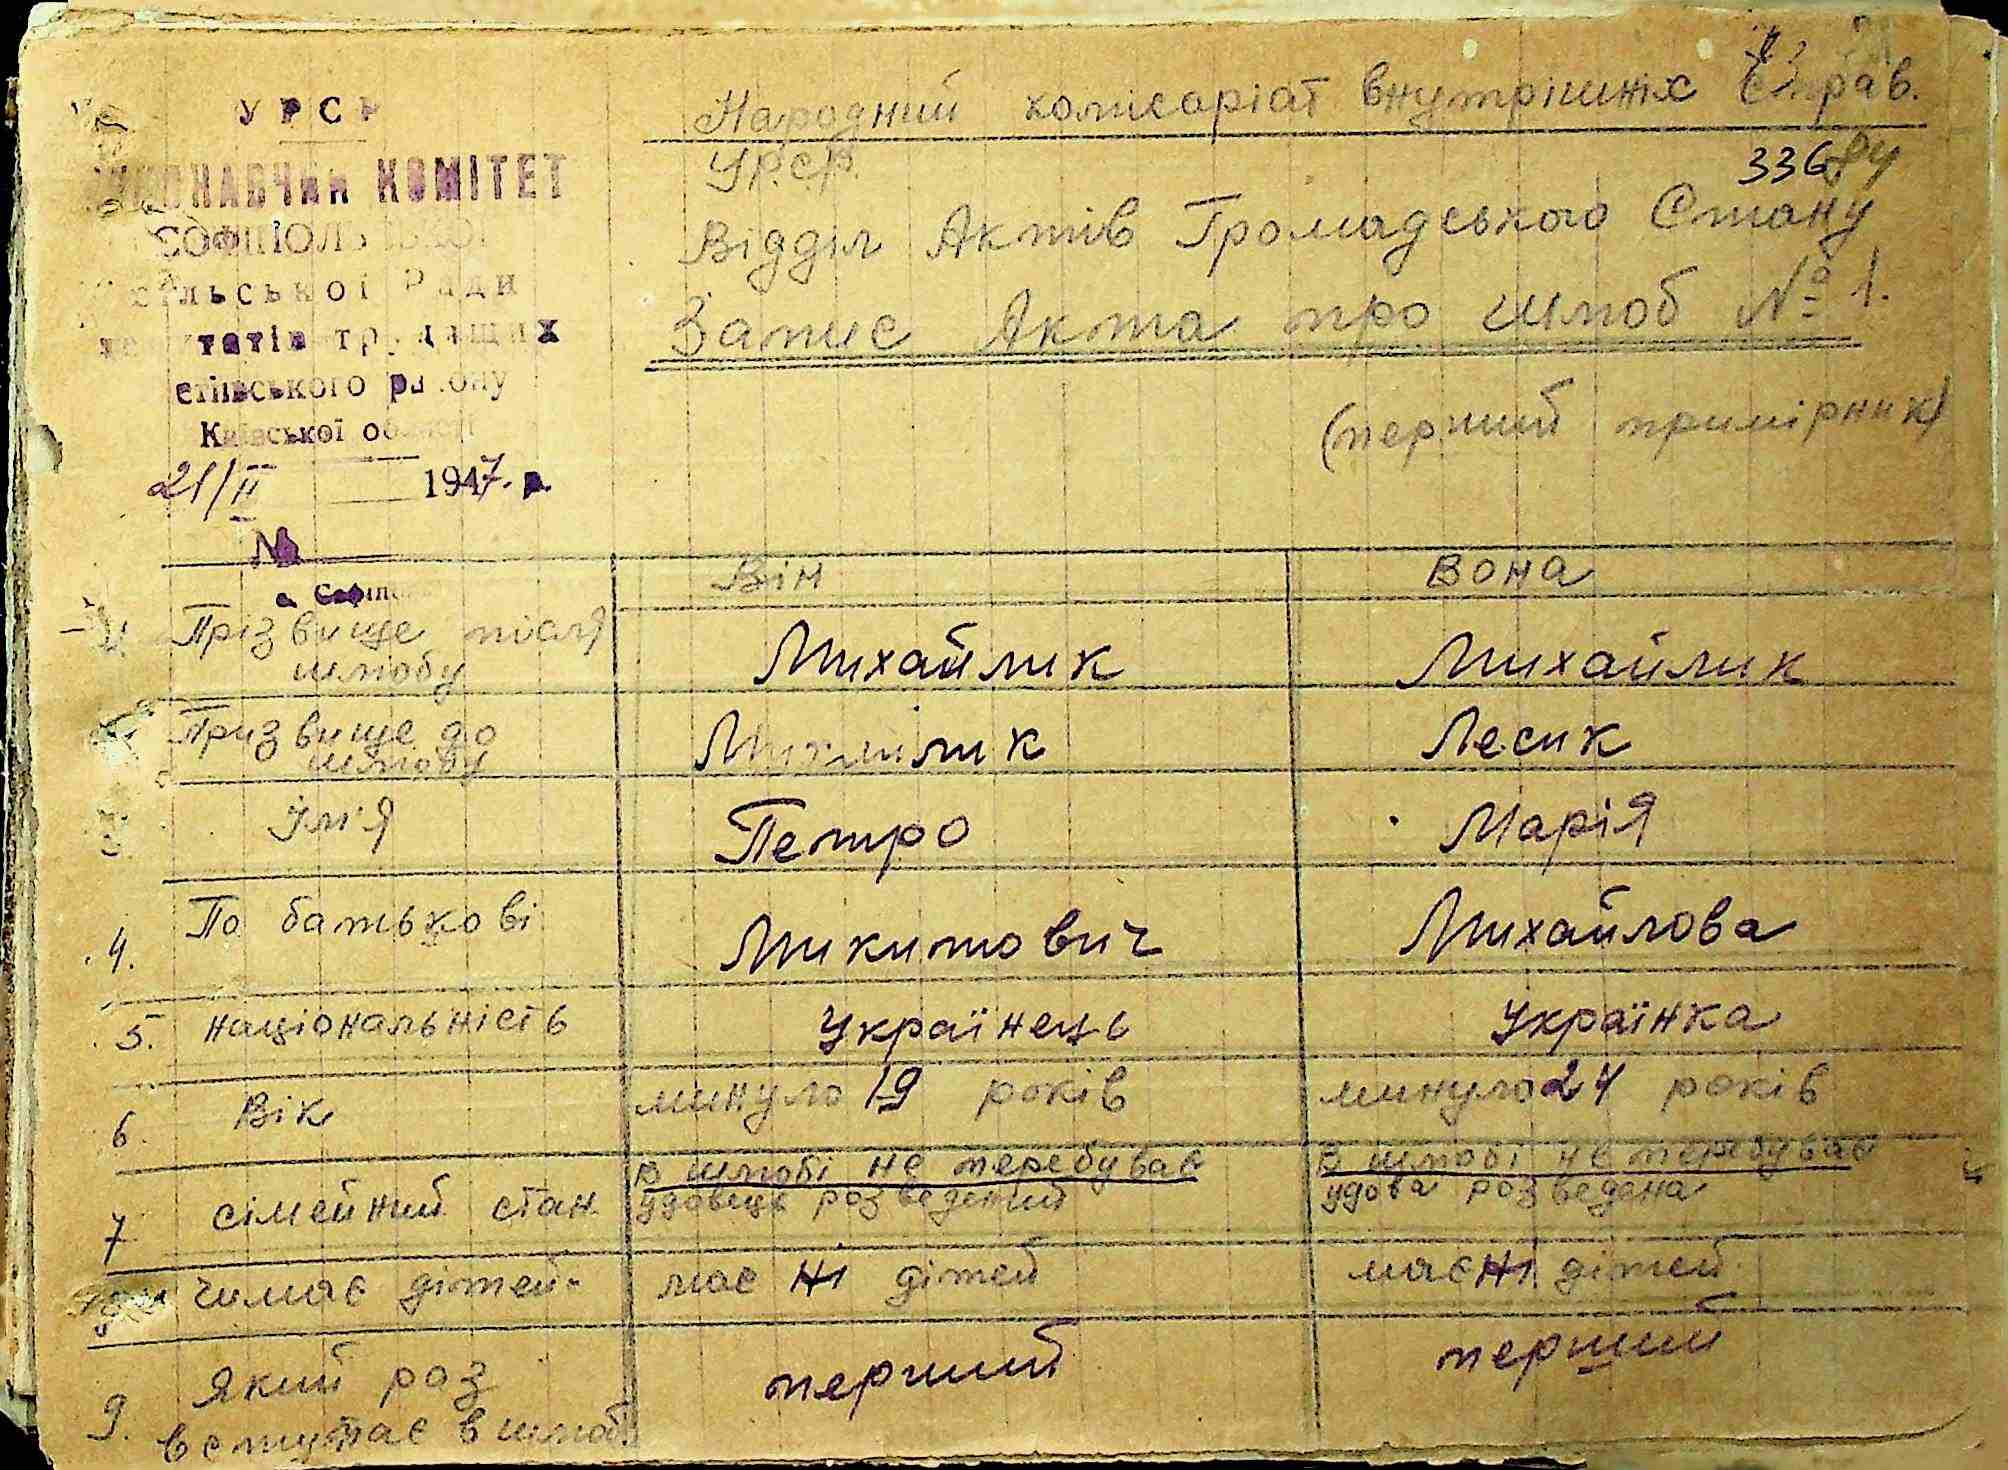 УРСР
ВИКОНАВЧИЙ КОМІТЕТ
СОФІПОЛЬСЬКОЇ
сільської Ради
депутатів трудящих
етіївського району
Київської області
21/II 1947. р.
№
с. Софіп
Народний комісаріат внутрішніх Справ.
УРСР.
336
Відділ Актів Громадського Стану
Запис Акта про шлюб № 1.
(перший примірник)
Він Вона
Прізвище після шлюбу Михайлик Михайлик
Призвище до шлюбу Михайлик Лесик
Ім'я Петро Марія
4. По батькові Микитович Михайлова
5. національність Українець Українка
6. Вік минуло 19 років минуло 24 років
7 сімейний стан В шлюбі не перебував В шлюбі не перебував
удовець розведений удова розведена
чи має дітей має ні дітей має ні дітей
9. Який раз перший перший
вступає в шлюб